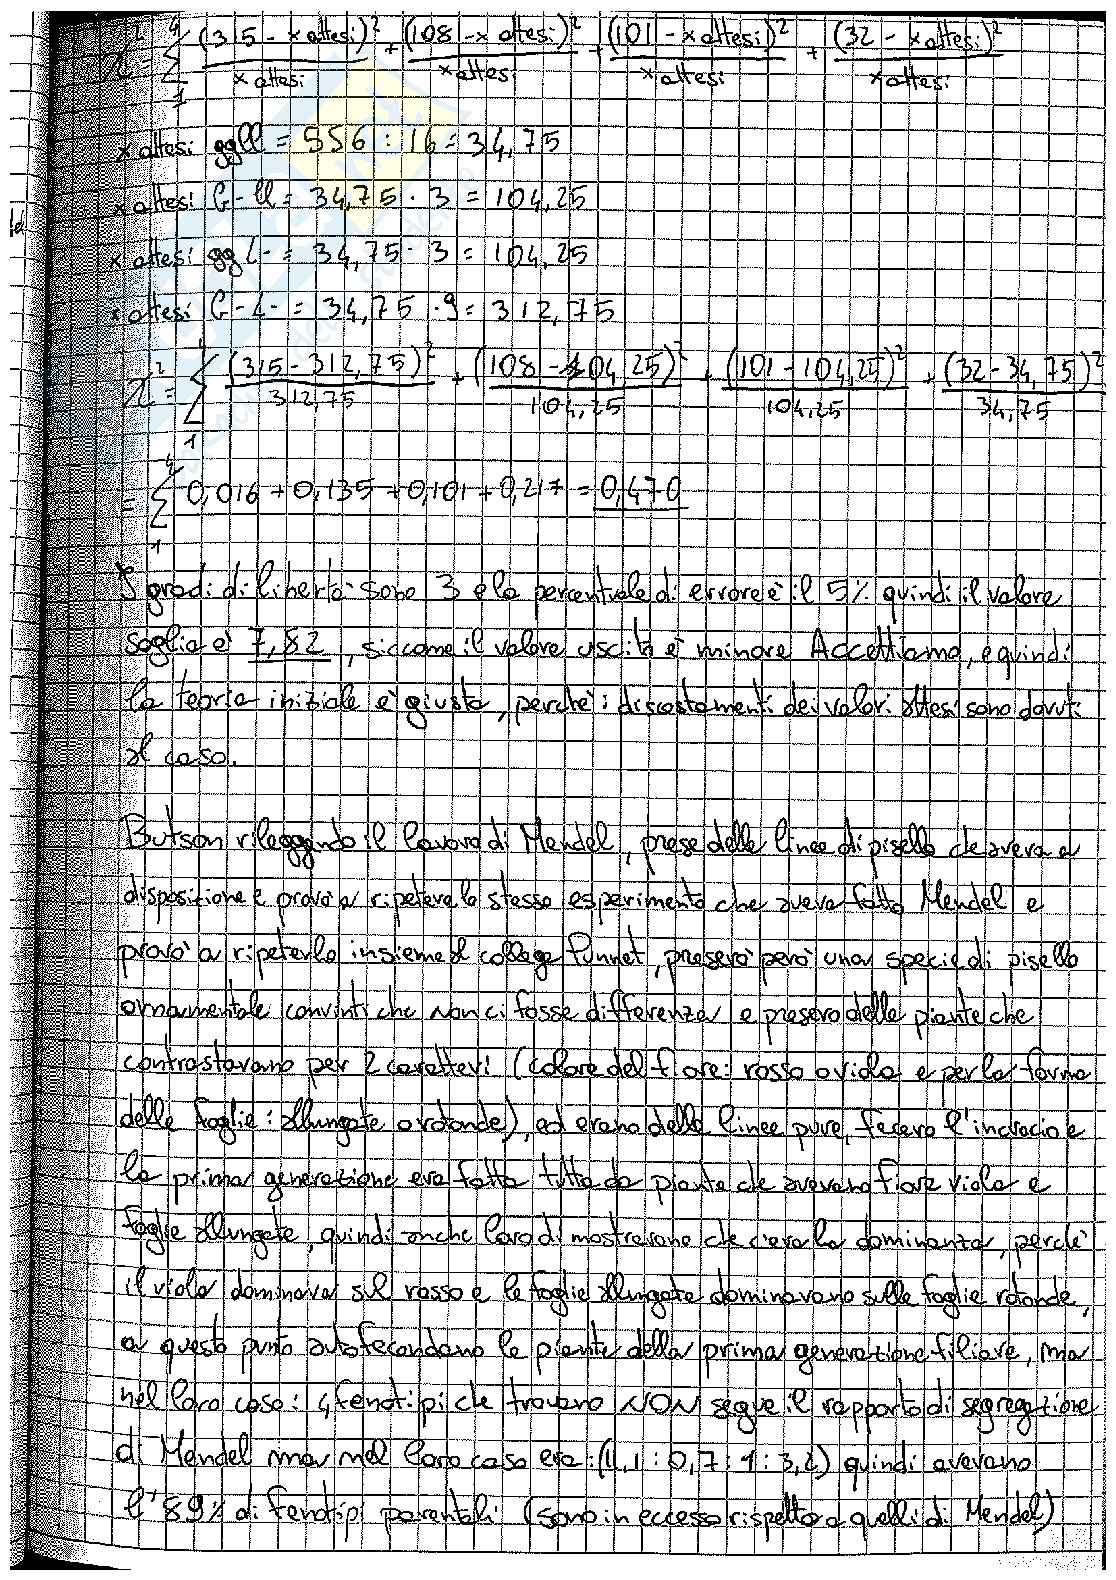 χ² = Σ⁴₁ (315 - x attesi)²/x attesi + (108 - x attesi)²/x attesi + (101 - x attesi)²/x attesi + (32 - x attesi)²/x attesi
x attesi ggll = 556 : 16 = 34,75
x attesi G-ll = 34,75 · 3 = 104,25
x attesi ggL- = 34,75 · 3 = 104,25
x attesi G-L- = 34,75 · 9 = 312,75
χ² = Σ⁴₁ (315 - 312,75)²/312,75 + (108 - 104,25)²/104,25 + (101 - 104,25)²/104,25 + (32 - 34,75)²/34,75
= Σ⁴₁ 0,016 + 0,135 + 0,101 + 0,217 = 0,470
I gradi di libertà sono 3 e la percentuale di errore è il 5% quindi il valore
soglia è 7,82, siccome il valore uscito è minore Accettiamo, e quindi
la teoria iniziale è giusta, perchè i discostamenti dei valori attesi sono dovuti
al caso.
Butson rileggendo il lavoro di Mendel, prese delle linee di pisello che aveva a
disposizione e provò a ripetere lo stesso esperimento che aveva fatto Mendel e
provò a ripeterlo insieme al collega Punnet, presero però una specie di pisello
ornamentale convinti che non ci fosse differenza e presero delle piante che
contrastavano per 2 caratteri (colore del fiore: rosso o viola e per la forma
delle foglie: allungate o rotonde), ed erano delle linee pure, fecero l'incrocio e
la prima generazione era fatta tutta da piante che avevano fiore viola e
foglie allungate, quindi anche loro dimostrarono che c'era la dominanza, perchè
il viola dominava sul rosso e le foglie allungate dominavano sulle foglie rotonde,
a questo punto autofecondano le piante della prima generazione filiare, ma
nel loro caso i 4 fenotipi che trovano NON segue il rapporto di segregazione
di Mendel ma nel loro caso era: (11,1 : 0,7 : 1 : 3,2) quindi avevano
l'89% di fenotipi parentali (sono in eccesso rispetto a quelli di Mendel)